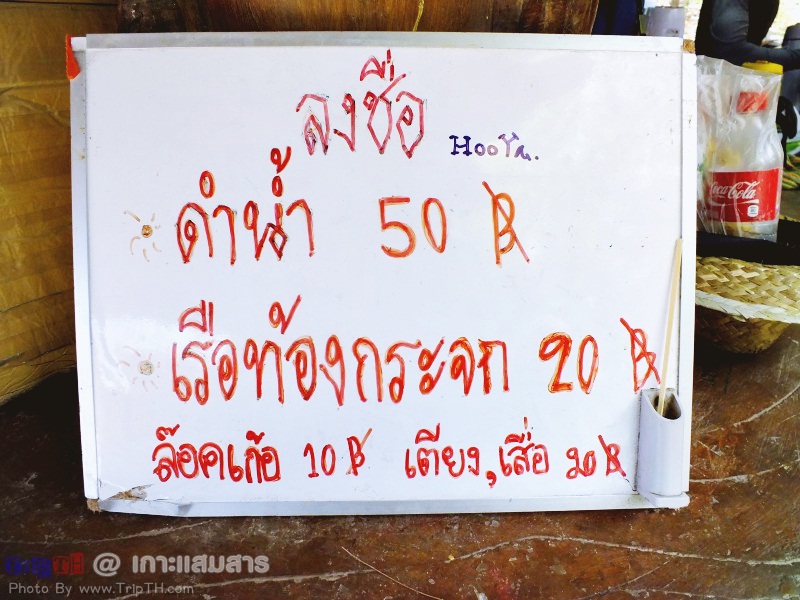 ลงชื่อ
HooYa.
ดำน้ำ 50 ฿
เรือท้องกระจก 20 ฿
ล๊อคเก้อ 10 ฿ เตียง,เสื่อ 20 ฿
Coca-Cola
@ เกาะแสมสาร
Photo By www.TripTH.com